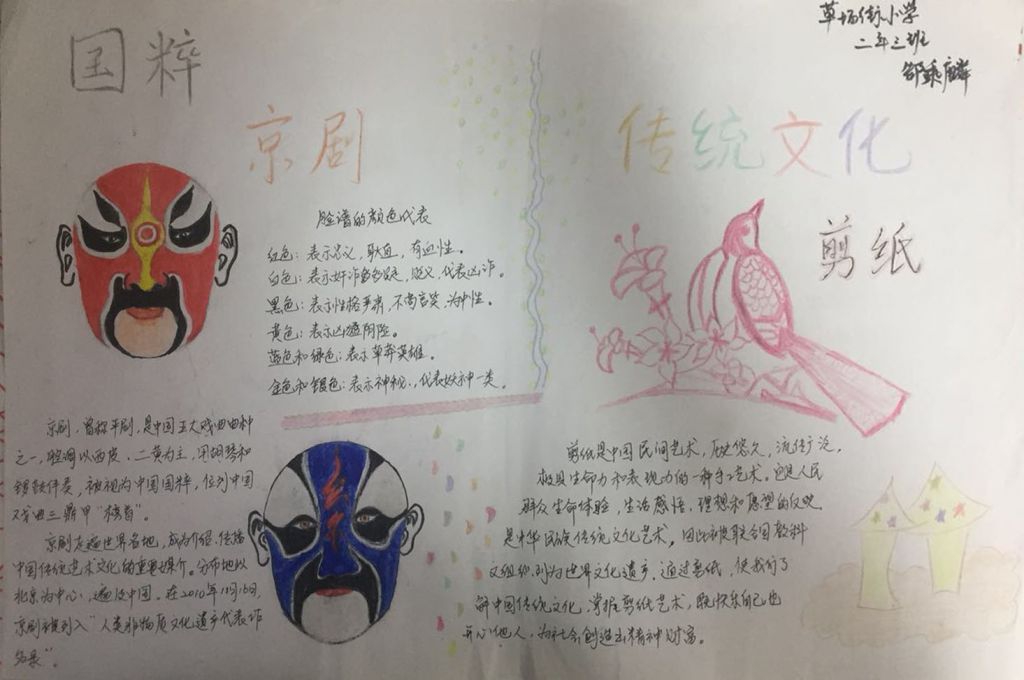 国粹
京剧
脸谱的颜色代表
红色：表示忠义，耿直，有血性。
白色：表示奸诈多疑，贬义，代表凶诈。
黑色：表示性格严肃，不苟言笑，为中性。
黄色：表示凶残阴险。
蓝色和绿色：表示草莽英雄。
金色和银色：表示神秘，代表妖神一类。
京剧，曾称平剧，是中国五大戏曲曲种
之一，腔调以西皮、二黄为主，用胡琴和
锣鼓伴奏，被视为中国国粹，位列中国
戏曲三鼎甲“榜首”。
京剧走遍世界各地，成为介绍、传播
中国传统艺术文化的重要媒介。分布地以
北京为中心，遍及中国。在2010年11月16日，
京剧被列入“人类非物质文化遗产代表作
名录”。
草场街小学
二年三班
邰秉麟
传统文化
剪纸
剪纸是中国民间艺术，历史悠久，流传广泛，
极具生命力和表现力的一种手艺术。它是人民
群众生命体验，生活感悟，理想和愿望的反映
是中华民族传统文化艺术。因此被联合国教科
文组织列为世界文化遗产，通过剪纸，使我们了
解中国传统文化，掌握剪纸艺术，既快乐自己也
开心他人，为社会创造出精神财富。